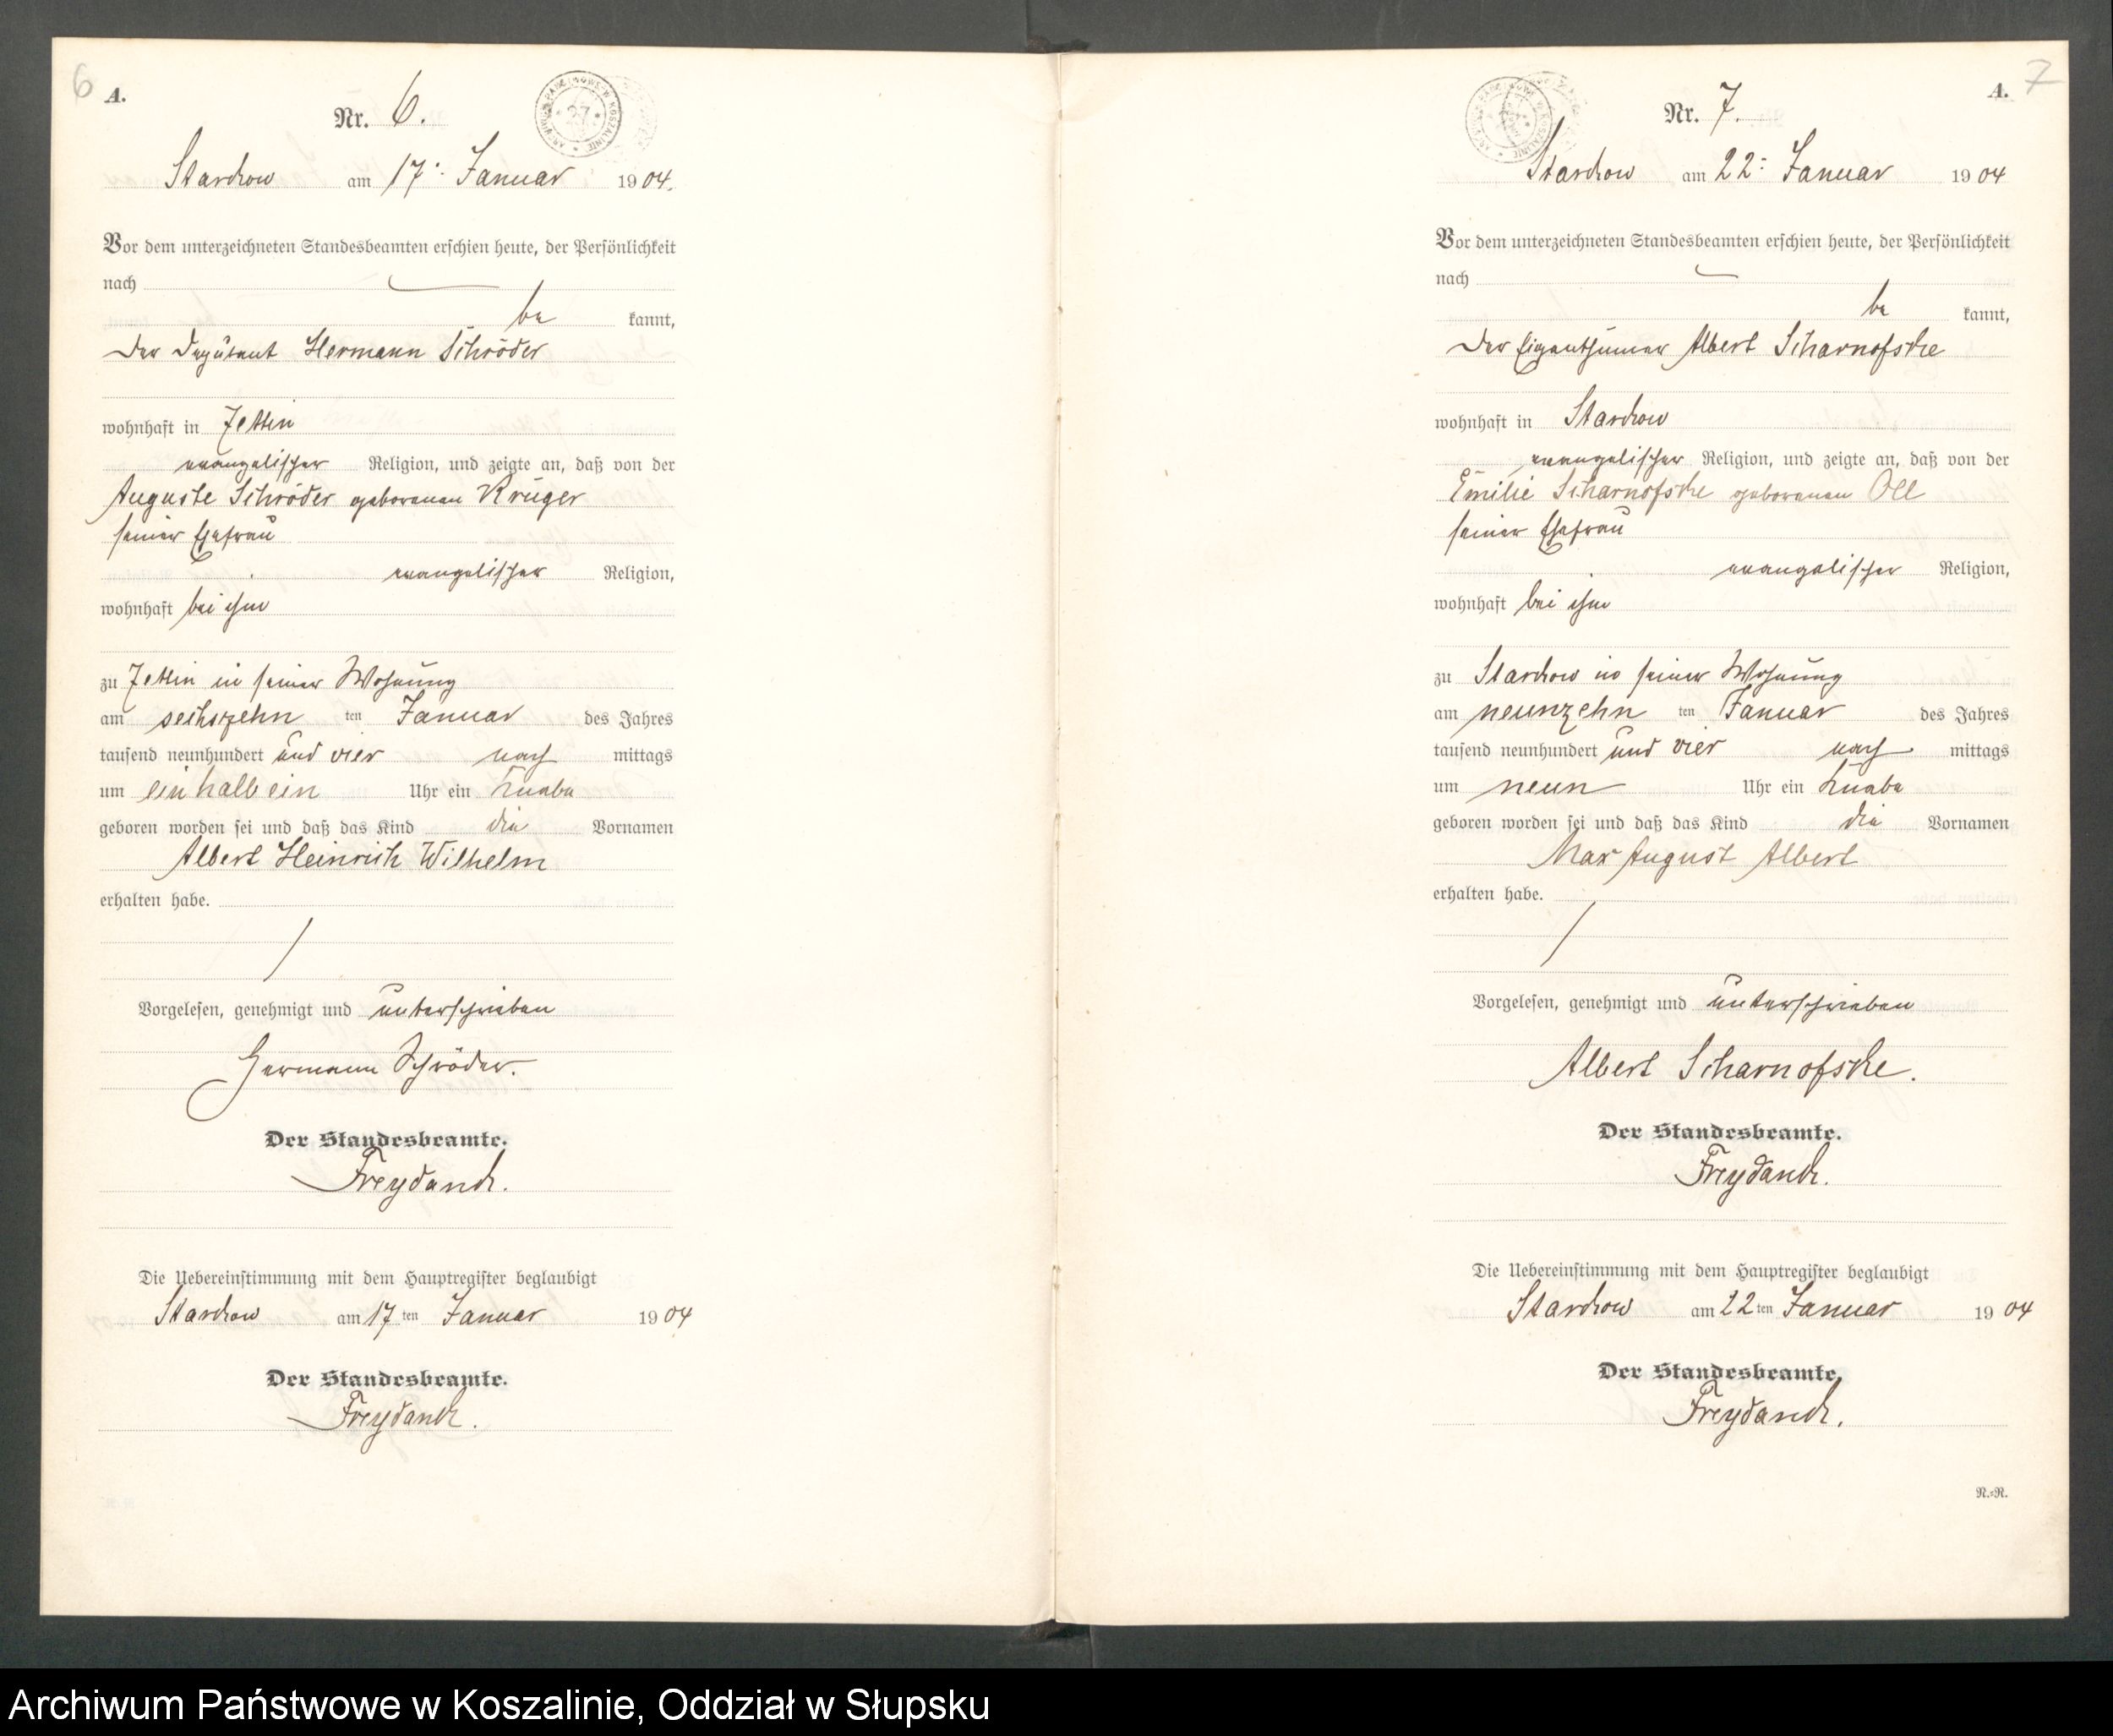 6
A.
Nr. 6.
Starckow am 17. Januar 1904.
Vor dem unterzeichneten Standesbeamten erschien heute, der Persönlichkeit
nach
be kannt,
der Deputant Hermann Schröder
wohnhaft in Zettin
evangelischer Religion, und zeigte an, daß von der
Auguste Schröder geborenen Krüger
seiner Ehefrau
evangelischer Religion,
wohnhaft bei ihm
zu Zettin in seiner Wohnung
am sechszehn ten Januar des Jahres
tausend neunhundert und vier nach mittags
um ein halb ein Uhr ein Knabe
geboren worden sei und daß das Kind die Vornamen
Albert Heinrich Wilhelm
erhalten habe.
Vorgelesen, genehmigt und unterschrieben
Hermann Schröder.
Der Standesbeamte.
Freydanck.
Die Uebereinstimmung mit dem Hauptregister beglaubigt
Starckow am 17 ten Januar 1904
Der Standesbeamte.
Freydanck.
7
A.
Nr. 7.
Starckow am 22. Januar 1904
Vor dem unterzeichneten Standesbeamten erschien heute, der Persönlichkeit
nach
be kannt,
der Eigenthümer Albert Scharnofske
wohnhaft in Starckow
evangelischer Religion, und zeigte an, daß von der
Emilie Scharnofske geborenen Oll
seiner Ehefrau
evangelischer Religion,
wohnhaft bei ihm
zu Starckow in seiner Wohnung
am neunzehn ten Januar des Jahres
tausend neunhundert und vier nach mittags
um neun Uhr ein Knabe
geboren worden sei und daß das Kind die Vornamen
Max August Albert
erhalten habe.
Vorgelesen, genehmigt und unterschrieben
Albert Scharnofske.
Der Standesbeamte.
Freydanck.
Die Uebereinstimmung mit dem Hauptregister beglaubigt
Starckow am 22 ten Januar 1904
Der Standesbeamte.
Freydanck.
N.=R.
Archiwum Państwowe w Koszalinie, Oddział w Słupsku